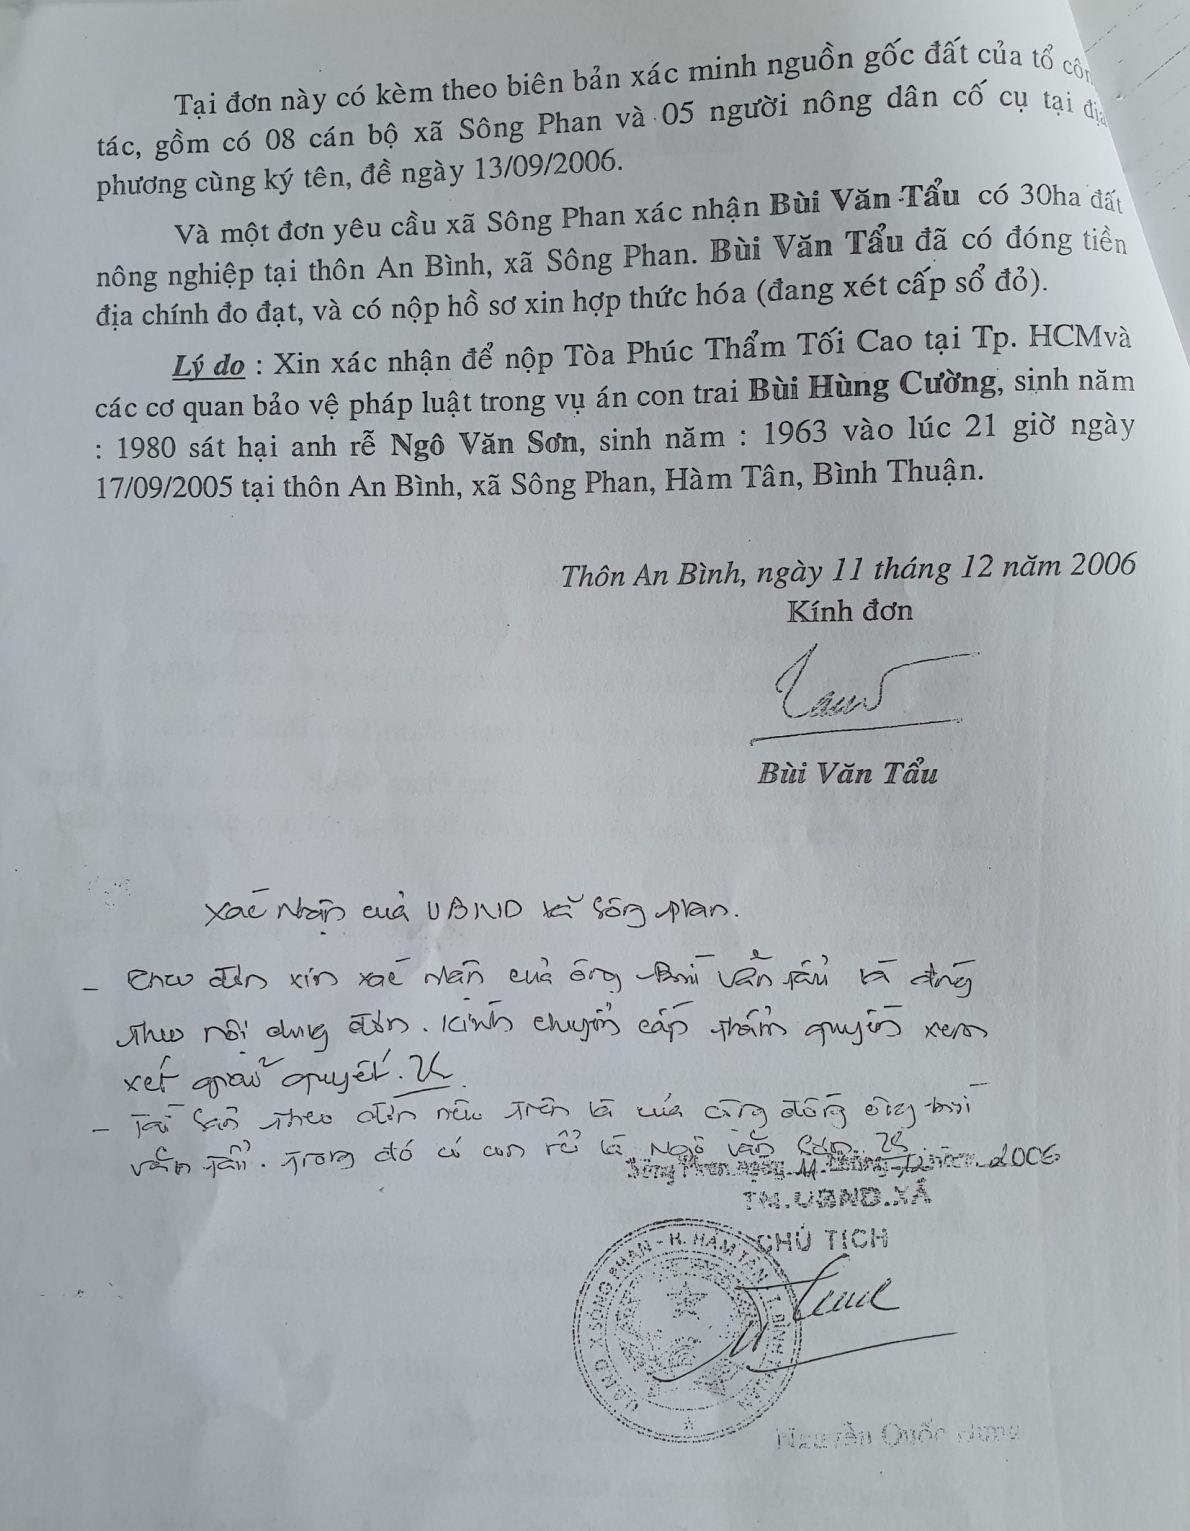 Tại đơn này có kèm theo biên bản xác minh nguồn gốc đất của tổ côn
tác, gồm có 08 cán bộ xã Sông Phan và 05 người nông dân cố cụ tại địa
phương cùng ký tên, đề ngày 13/09/2006.
Và một đơn yêu cầu xã Sông Phan xác nhận Bùi Văn Tẩu có 30ha đất
nông nghiệp tại thôn An Bình, xã Sông Phan. Bùi Văn Tẩu đã có đóng tiền
địa chính đo đạt, và có nộp hồ sơ xin hợp thức hóa (đang xét cấp sổ đỏ).
Lý do : Xin xác nhận để nộp Tòa Phúc Thẩm Tối Cao tại Tp. HCMvà
các cơ quan bảo vệ pháp luật trong vụ án con trai Bùi Hùng Cường, sinh năm
: 1980 sát hại anh rễ Ngô Văn Sơn, sinh năm : 1963 vào lúc 21 giờ ngày
17/09/2005 tại thôn An Bình, xã Sông Phan, Hàm Tân, Bình Thuận.
Thôn An Bình, ngày 11 tháng 12 năm 2006
Kính đơn
Bùi Văn Tẩu
Xác nhận của UBND xã Sông Phan.
- Theo đơn xin xác nhận của ông Bùi Văn Tẩu là đúng
theo nội dung đơn. Kính chuyển cấp thẩm quyền xem
xét giải quyết.
- Tài sản theo đơn nêu trên là của công đồng ông Bùi
Văn Tẩu. Trong đó có con rể là Ngô Văn Sơn.
Sông Phan, ngày 11 tháng 12 năm 2006
TM.UBND.XÃ
CHỦ TỊCH
UBND X SÔNG PHAN - H. HÀM TÂN T. BÌNH THUẬN
Nguyễn Quốc Hưng